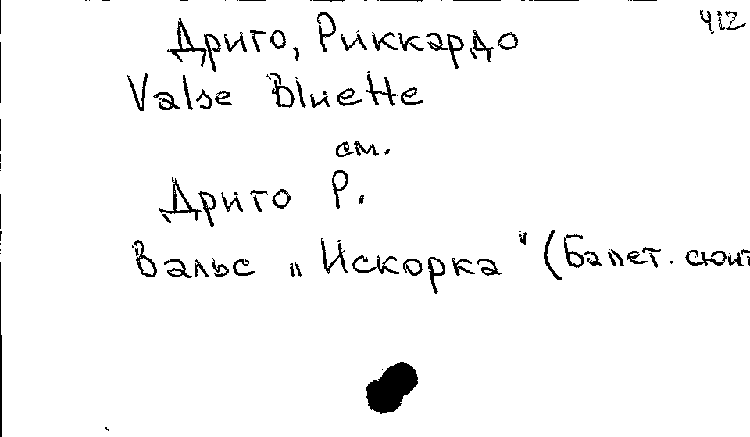 412
Дриго, Риккардо
Valse Bluette
см.
Дриго Р.
Вальс „Искорка" (Балет. сюит